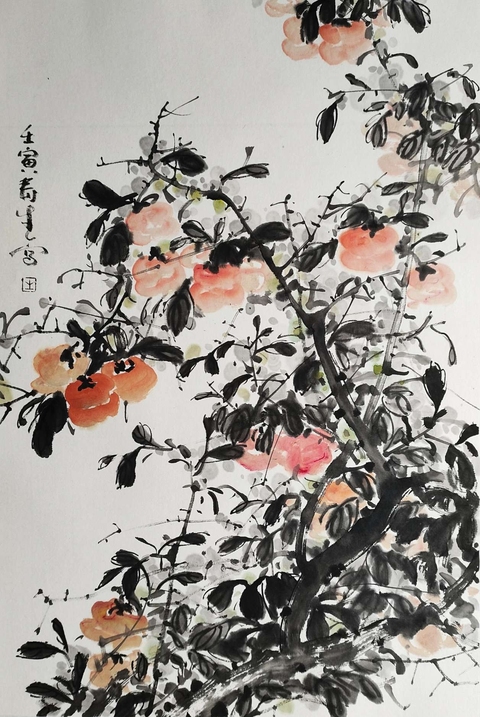 壬寅寿生写